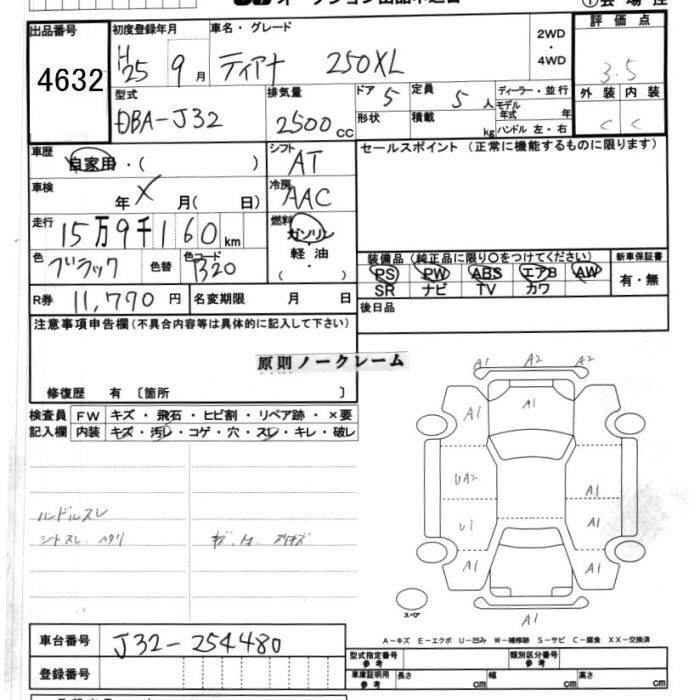 出品番号
4632
初度登録年月
H25 9月
車名・グレード
ティアナ 250XL
2WD
・
4WD
評価点
3.5
型式
DBA-J32
排気量
2500 cc
ドア 5
定員 5人
形状
積載 kg
ディーラー・並行
モデル年式 年
ハンドル 左・右
外装 内装
C C
車歴
自家用・( )
シフト
AT
セールスポイント (正常に機能するものに限ります)
車検
年 X 月( 日)
冷房
AAC
走行
15万9千160km
燃料
ガソリン
軽油
・( )
色
ブラック
色替
色コード
B20
装備品 (純正品に限り○をつけてください)
PS PW ABS エアB AW
SR ナビ TV カワ
新車保証書
有・無
R券 11,790円
名変期限 月 日
後日品
注意事項申告欄(不具合内容等は具体的に記入して下さい)
原則ノークレーム
修復歴 有 〔箇所 〕
検査員記入欄
FW キズ・飛石・ヒビ割・リペア跡・×要
内装 キズ・汚レ・コゲ・穴・スレ・キレ・破レ
ハンドルスレ
シートスレ・ヘタリ
A1 A2 A2
A1 A1
UA2 A1
U1 A1
A1 A1
A1
スペア
車台番号
J32-254480
登録番号
A-キズ E-エクボ U-凹み W-補修跡 S-サビ C-腐食 XX-交換済
型式指定番号 参考
類別区分番号 参考
車庫証明用 参考
長さ cm
幅 cm
高さ cm